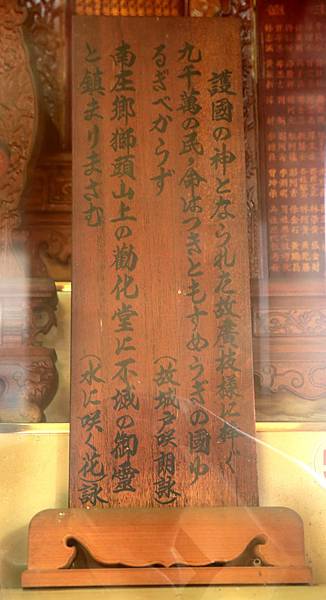 護國の神となられた故廣枝様に捧ぐ
九千萬の民の命はつきともすめらぎの國ゆ
るぎべからず
(故城戸咲朗詠)
南庄鄉獅頭山上の勸化堂に不滅の御靈
と鎮まりまさむ
(水に咲く花)詠